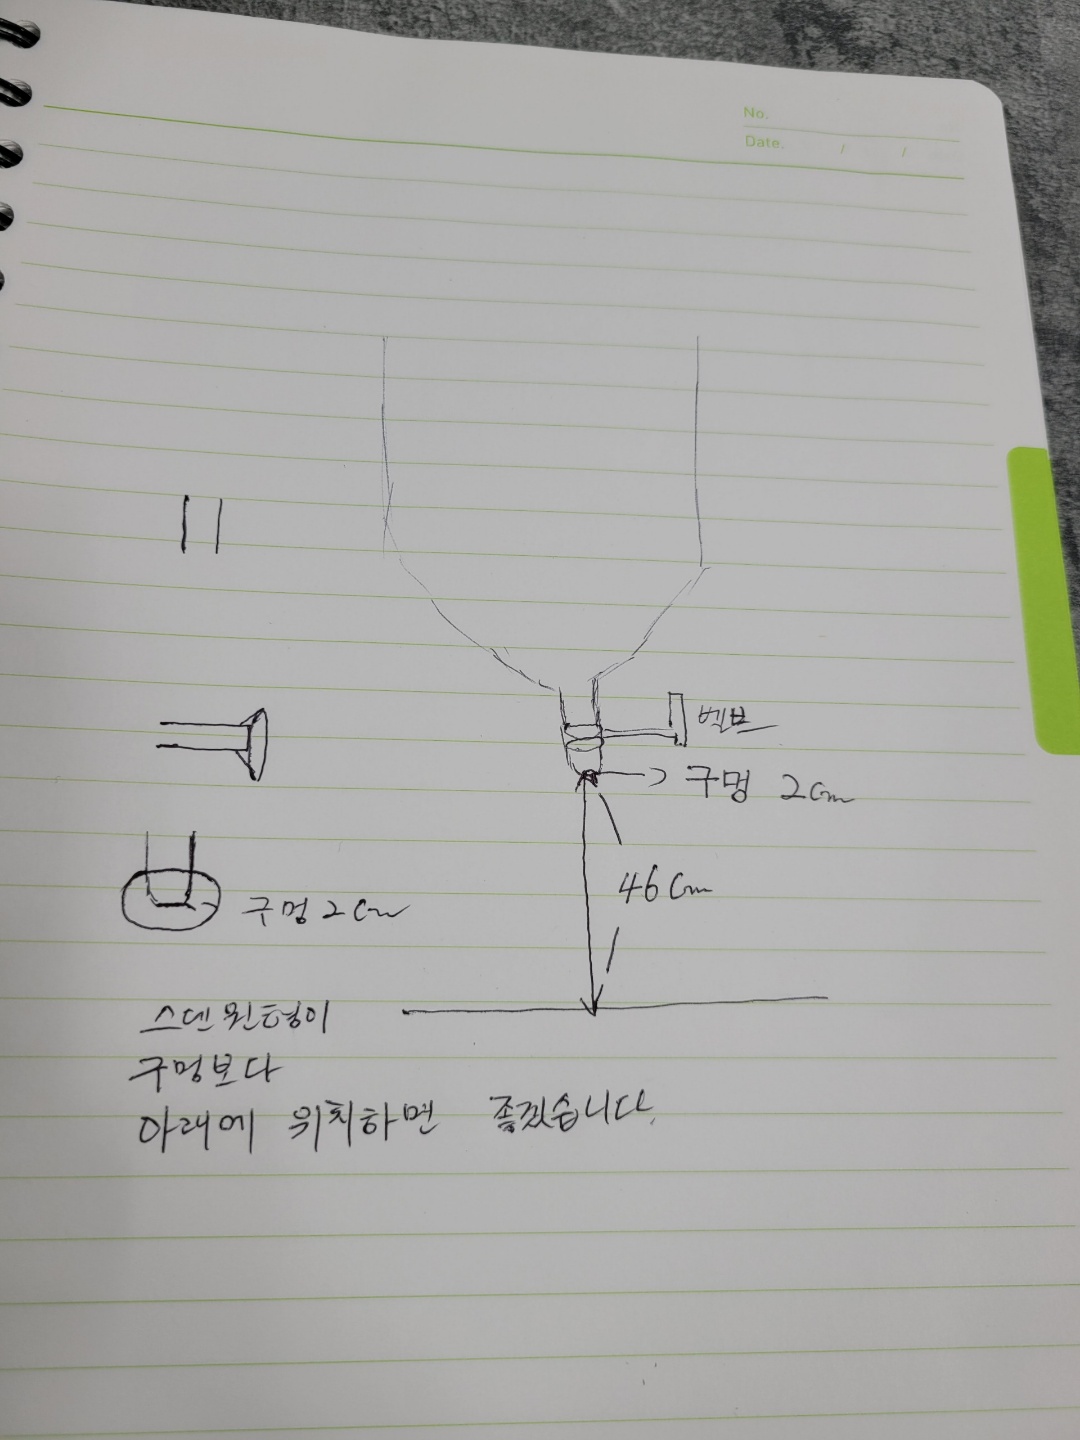 No.
Date. / /
벨브
구멍 2cm
46cm
구멍 2cm
스덴 원형이
구멍보다
아래에 위치하면 좋겠습니다.